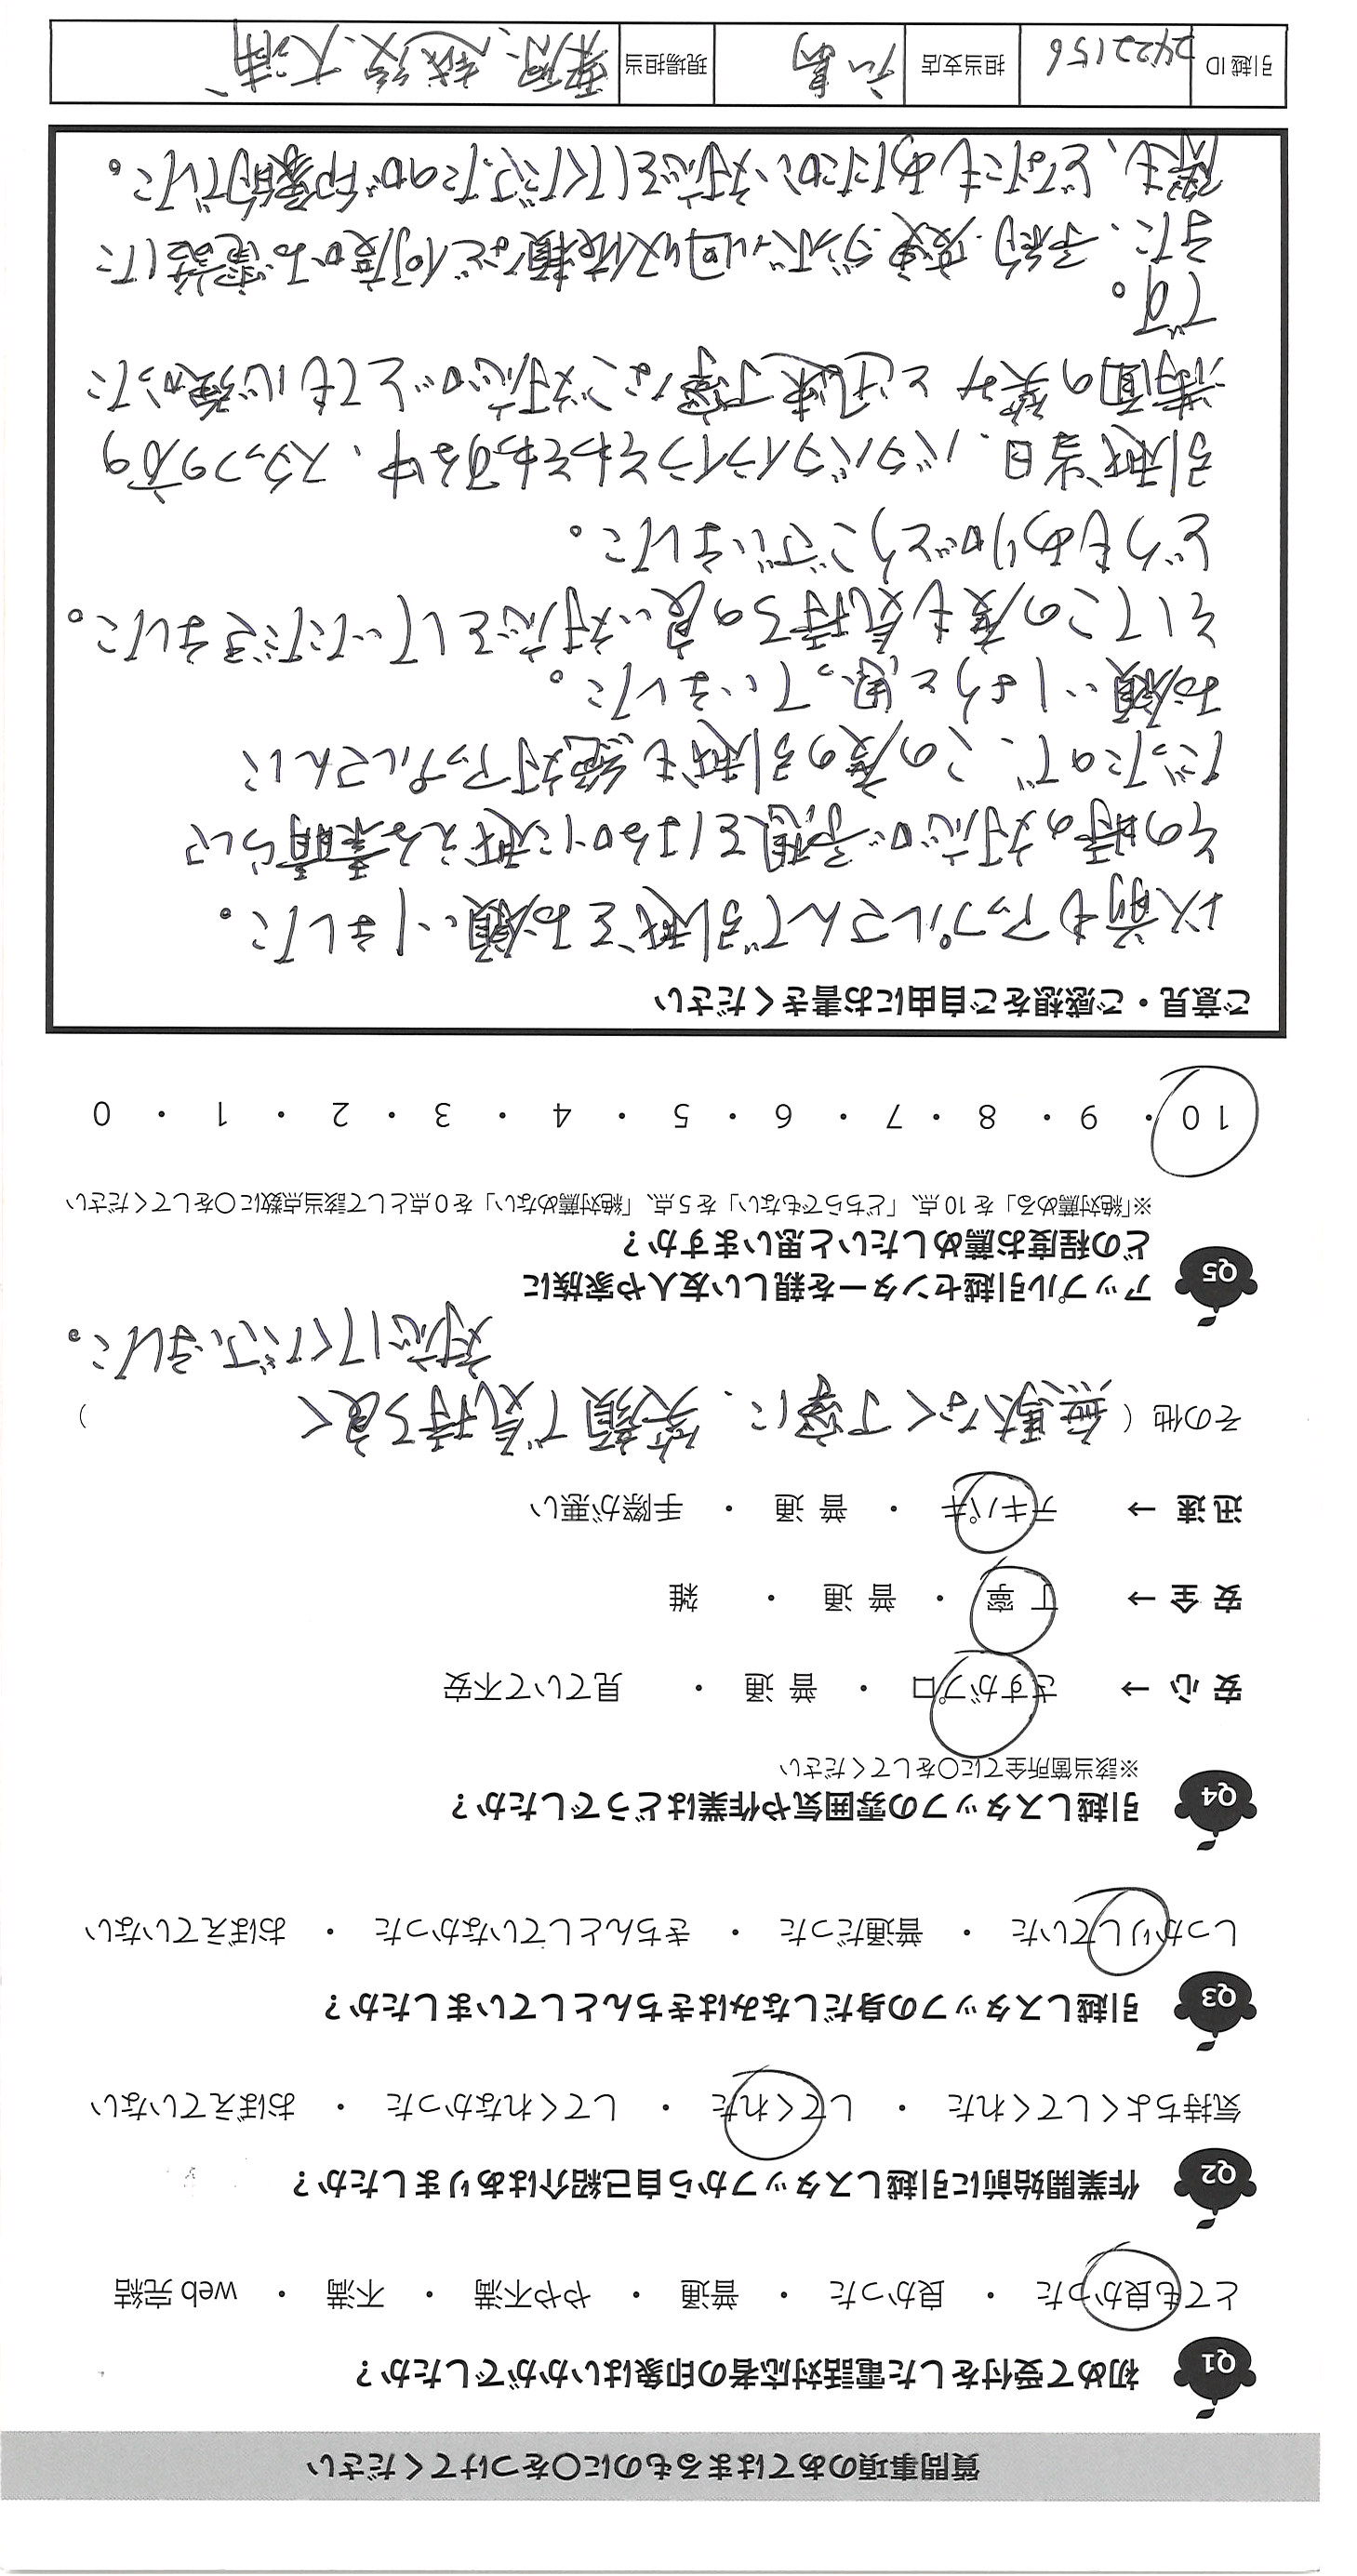 質問事項のあてはまるものに〇をつけてください
Q1 初めて受付をした電話対応者の印象はいかがでしたか？
とても良かった ・ 良かった ・ 普通 ・ やや不満 ・ 不満 ・ web 完結
Q2 作業開始前に引越しスタッフから自己紹介はありましたか？
気持ちよくしてくれた ・ してくれた ・ してくれなかった ・ おぼえていない
Q3 引越しスタッフの身だしなみはきちんとしていましたか？
しっかりしていた ・ 普通だった ・ きちんとしていなかった ・ おぼえていない
Q4 引越しスタッフの雰囲気や作業はどうでしたか？
※該当箇所全てに〇をしてください
安心 → さすがプロ ・ 普通 ・ 見ていて不安
安全 → 丁寧 ・ 普通 ・ 雑
迅速 → テキパキ ・ 普通 ・ 手際が悪い
その他（ 無駄なく丁寧に、笑顔で気持ち良く ）
対応してくださいました。
Q5 アップル引越センターを親しい友人や家族に
どの程度お薦めしたいと思いますか？
※「絶対薦める」を 10 点、「どちらでもない」を 5 点、「絶対薦めない」を 0 点として該当点数に〇をしてください
10 ・ 9 ・ 8 ・ 7 ・ 6 ・ 5 ・ 4 ・ 3 ・ 2 ・ 1 ・ 0
ご意見・ご感想をご自由にお書きください
以前もアップルさんで引越をお願いしました。
その時の対応が予想をはるかに超える素晴らしさ
だったので、この度の引越も絶対アップルさんに
お願いしようと思っていました。
そしてこの度も気持ちの良い対応をしていただきました。
どうもありがとうございました。
引越当日、バタバタイライラそわそわする中、スタッフの方の
満面の笑みと迅速丁寧なご対応がとても心強かった
です。
また、予約、変更、ダンボール回収依頼など何度かお電話した
際も、どなたもあたたかい対応をしてくださったのが印象的でした。
引越ID 2422156 担当支店 現場担当 大浦